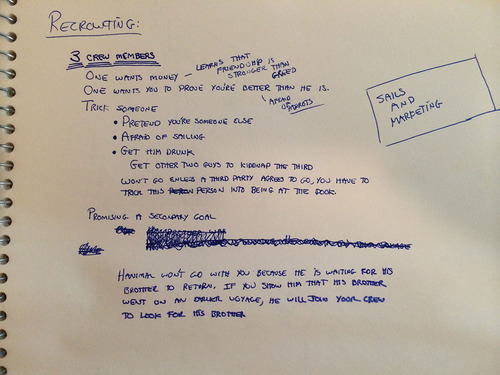 RECRUITING:
3 CREW MEMBERS
ONE WANTS MONEY – LEARNS THAT
FRIENDSHIP IS
STRONGER THAN
GREED
ONE WANTS YOU TO PROVE YOU'RE BETTER THAN HE IS.
AFRAID
OF
TRICK SOMEONE
• PRETEND YOU'RE SOMEONE ELSE
• AFRAID OF SAILING
• GET HIM DRUNK
GET OTHER TWO GUYS TO KIDNAP THE THIRD
WON'T GO UNLESS A THIRD PARTY AGREES TO GO, YOU HAVE TO
TRICK THIS PERSON INTO BEING AT THE DOCKS
PROMISING A SECONDARY GOAL
HANNIBAL WON'T GO WITH YOU BECAUSE HE IS WAITING FOR HIS
BROTHER TO RETURN. IF YOU SHOW HIM THAT HIS BROTHER
WENT ON AN EARLIER VOYAGE, HE WILL JOIN YOUR CREW
TO LOOK FOR HIS BROTHER
SAILS
AND
MARKETING